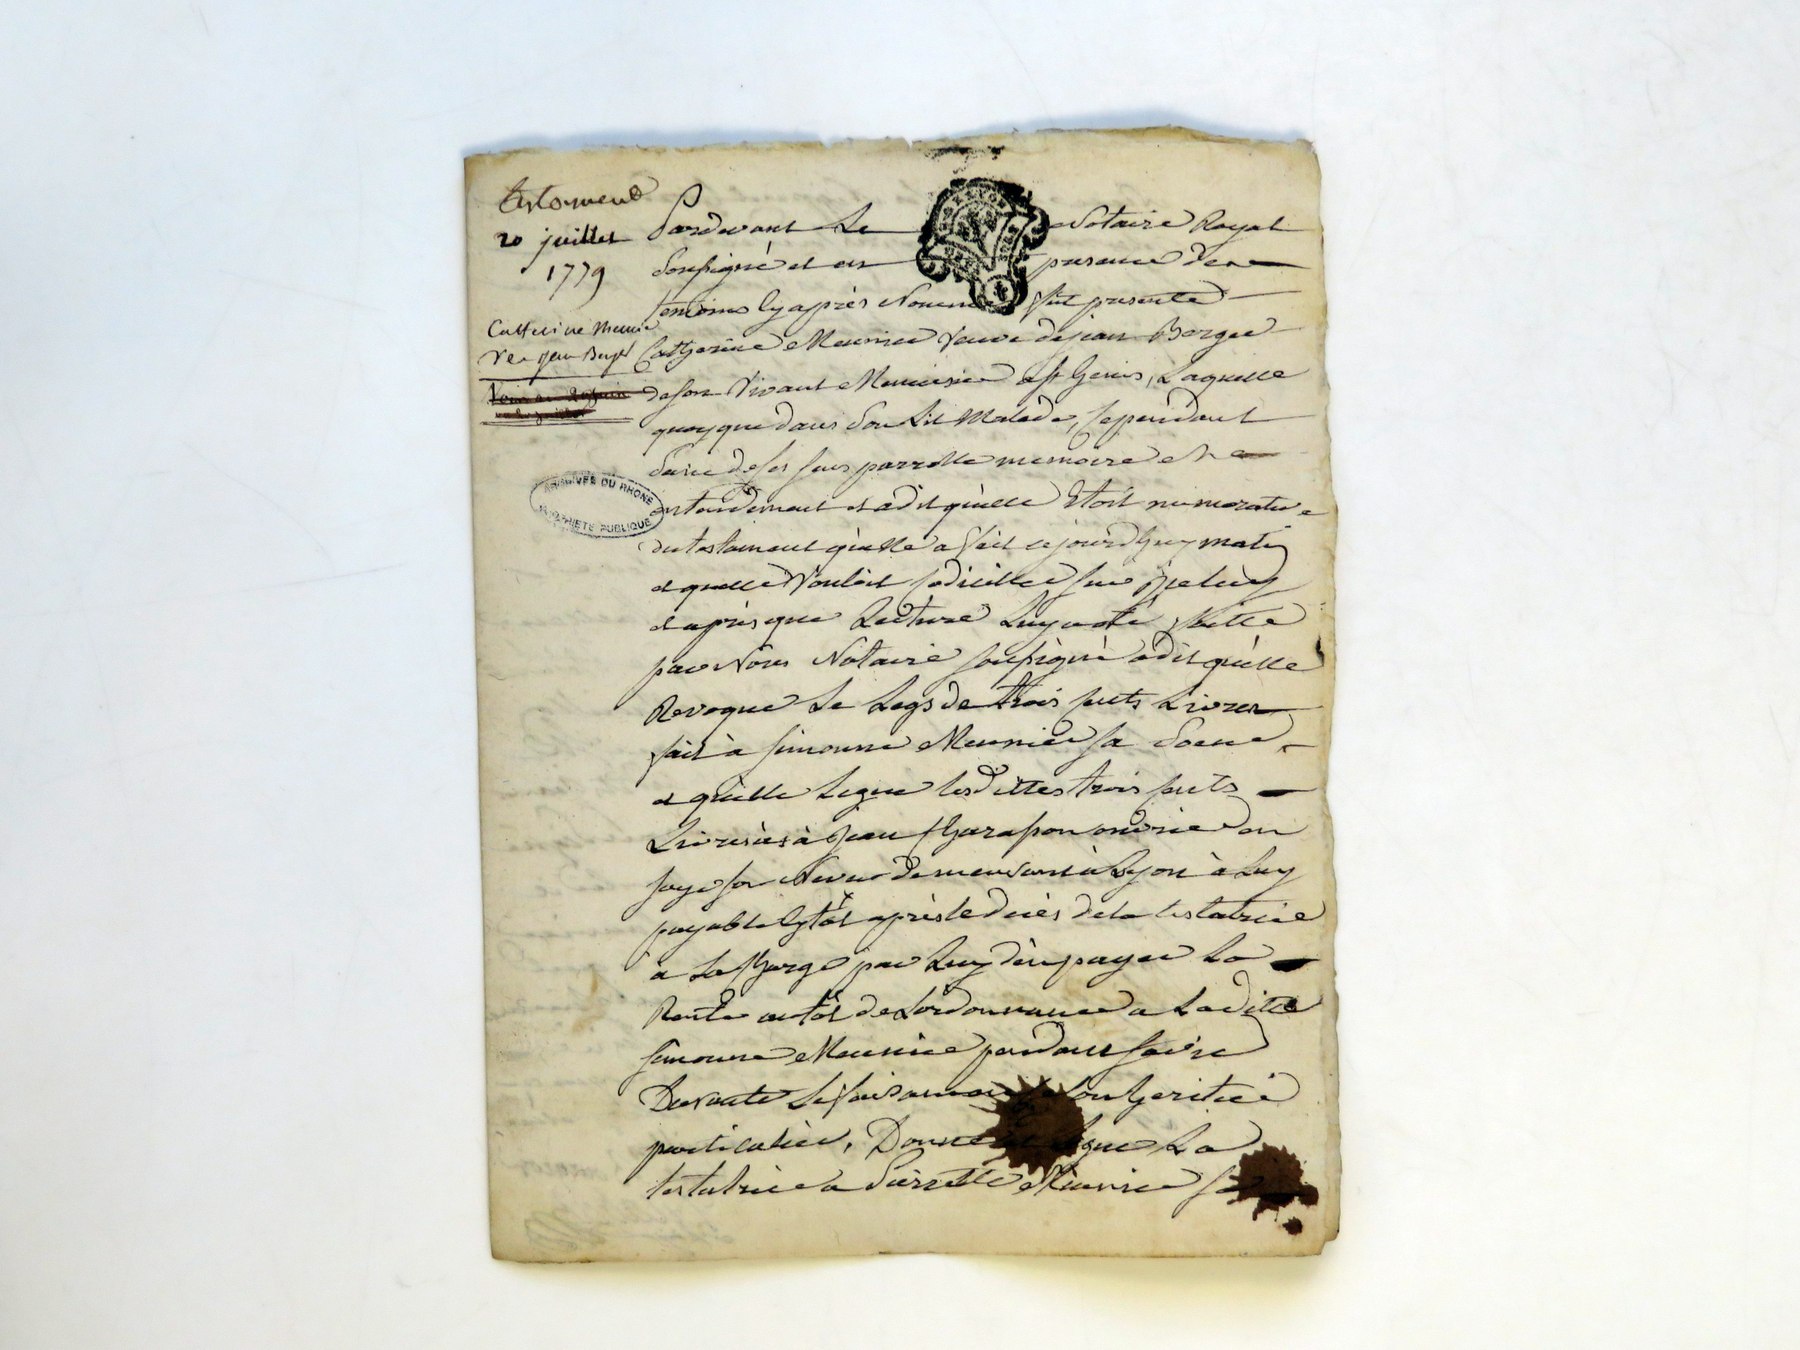 testament
20 juillet
1779
Catherine Meunie
Ve jean Berger
ARCHIVES DU RHONE
PROPRIETE PUBLIQUE
Pardevant Le Notaire Royal
soussigné et en presence des
temoins cy après Nommés fut presente
Catherine Meunier veuve de jean Berger
de son vivant Meunier a st Genis, Laquelle
quoyque dans son Lit Malade, cependant
saine de ses sens parrolle memoire et
entendement a dit quèlle Etoit memorative
du testament quèlle a fait cejourdhuy matin
et quelle Vouloit codiciller sur jceluy
et après que Lecture Luy a eté faitte
par Nous Notaire soussigné a dit quèlle
Revoque Le Legs de trois cents Livres
fait à simonne Meunier sa soeur
et quèlle Legue lesdittes trois cents
Livres à jean Charasson ouvrier en
soye son Neveu demeurant à Lyon à Luy
payable sytôt après le decès de la testatrice
a La Charge par Luy d'en payer La
Rente au tôt de Lordonnance a Laditte
simonne Meunier pendant sa vie
Durante Le faisant son heritier
particulier, Donne Legue La
testatrice a Pierrette Meunier sa